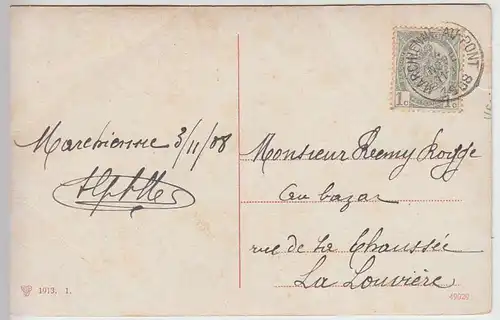 MARCHIENNE-AU-PONT
Marchienne 3/11/08
Monsieur Remy
au bazar
rue de la Chaussée
La Louvière
1013. 1.